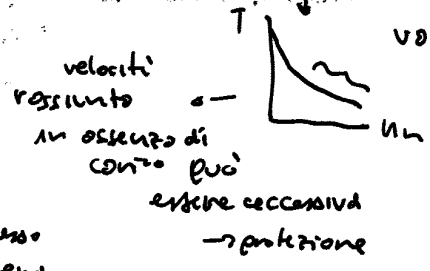 T
velocità
raggiunta
in assenza di
carico può
essere eccessiva
→ protezione